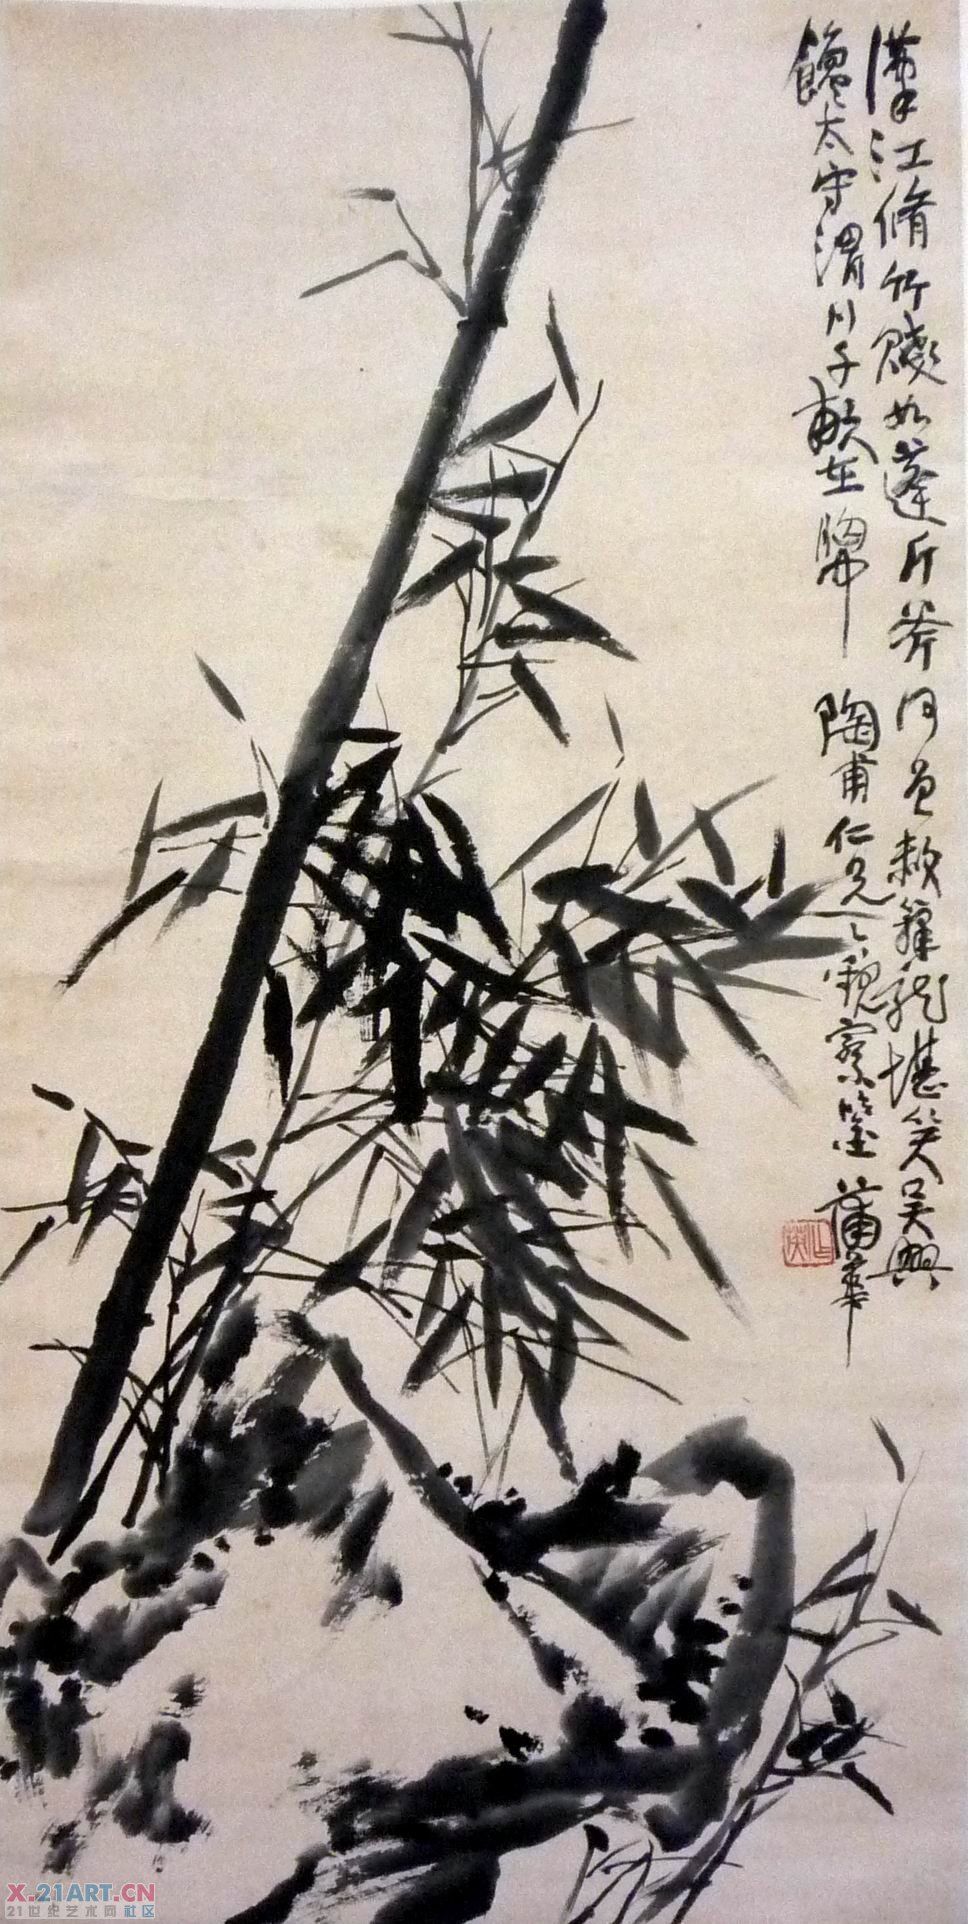 漢江脩竹賤如蓬斤斧何曾赦籜龍堪笑吳興
饞太守渭川千畝在胸中
陶甫仁兄之觀察鑒 蒲華
X-21ART.CN
21世纪艺术网社区